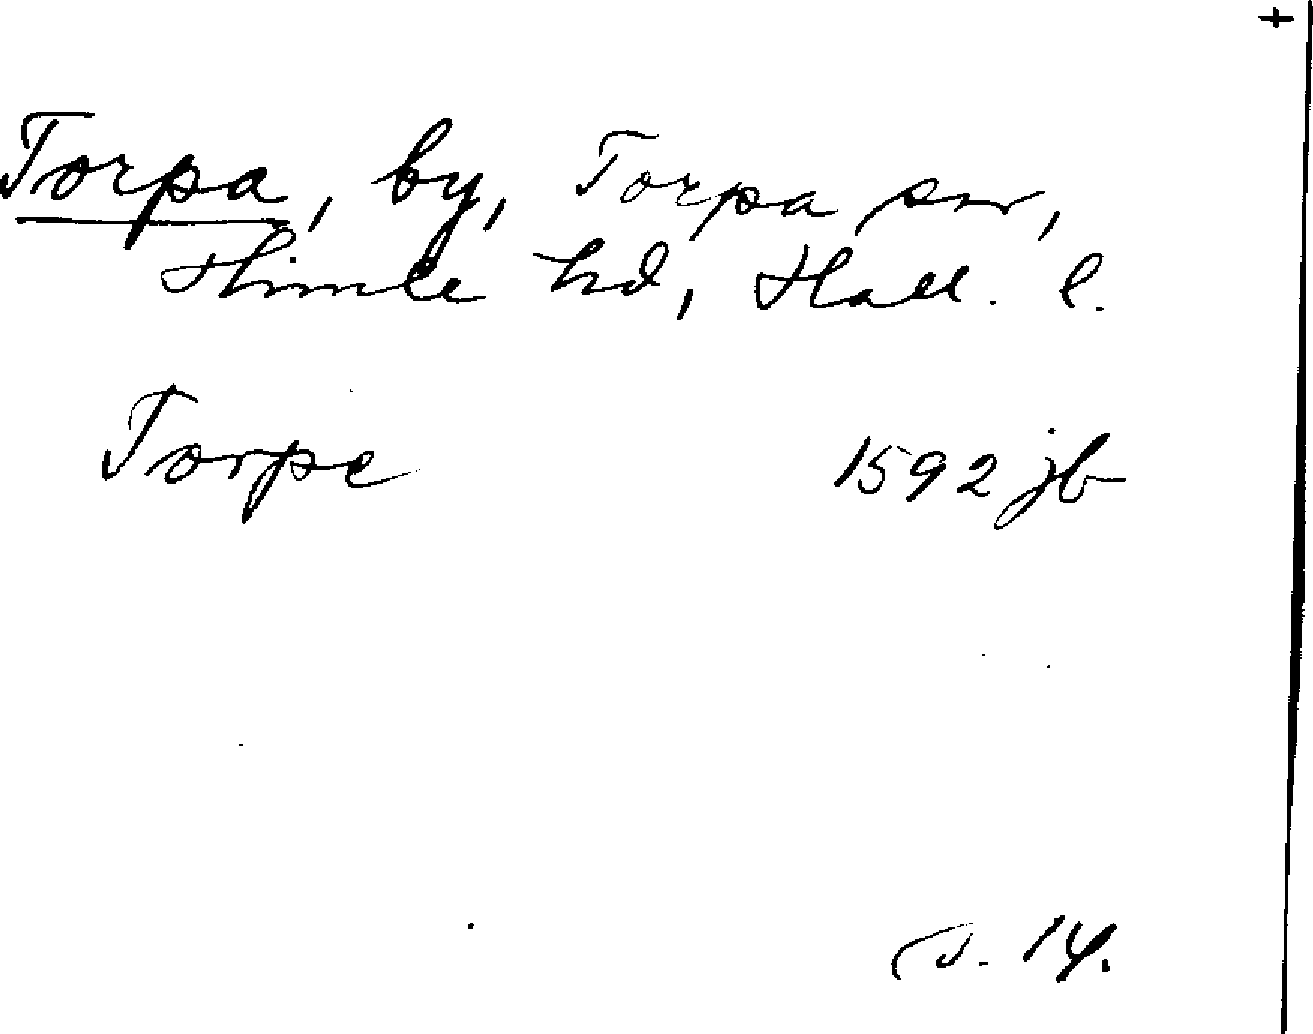 +
Torpa, by, Torpa sn,
Himle hd, Hall. l.
Torpe 1592 jb
s. 14.